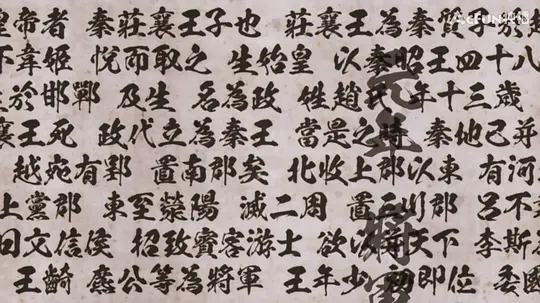 皇帝者 秦莊襄王子也 莊襄王為秦質子於趙
不韋姬 悅而取之 生始皇 以秦昭王四十八
生於邯鄲 及生 名為政 姓趙氏 年十三歲
襄王死 政代立為秦王 當是之時 秦他已并
越宛有郢 置南郡矣 北收上郡以東 有河
上黨郡 東至滎陽 滅二周 置三川郡 呂不韋
曰文信侯 招致賓客游士 欲以并天下 李斯為
王齮 麃公等為將軍 王年少 初即位 委國
元年
將軍